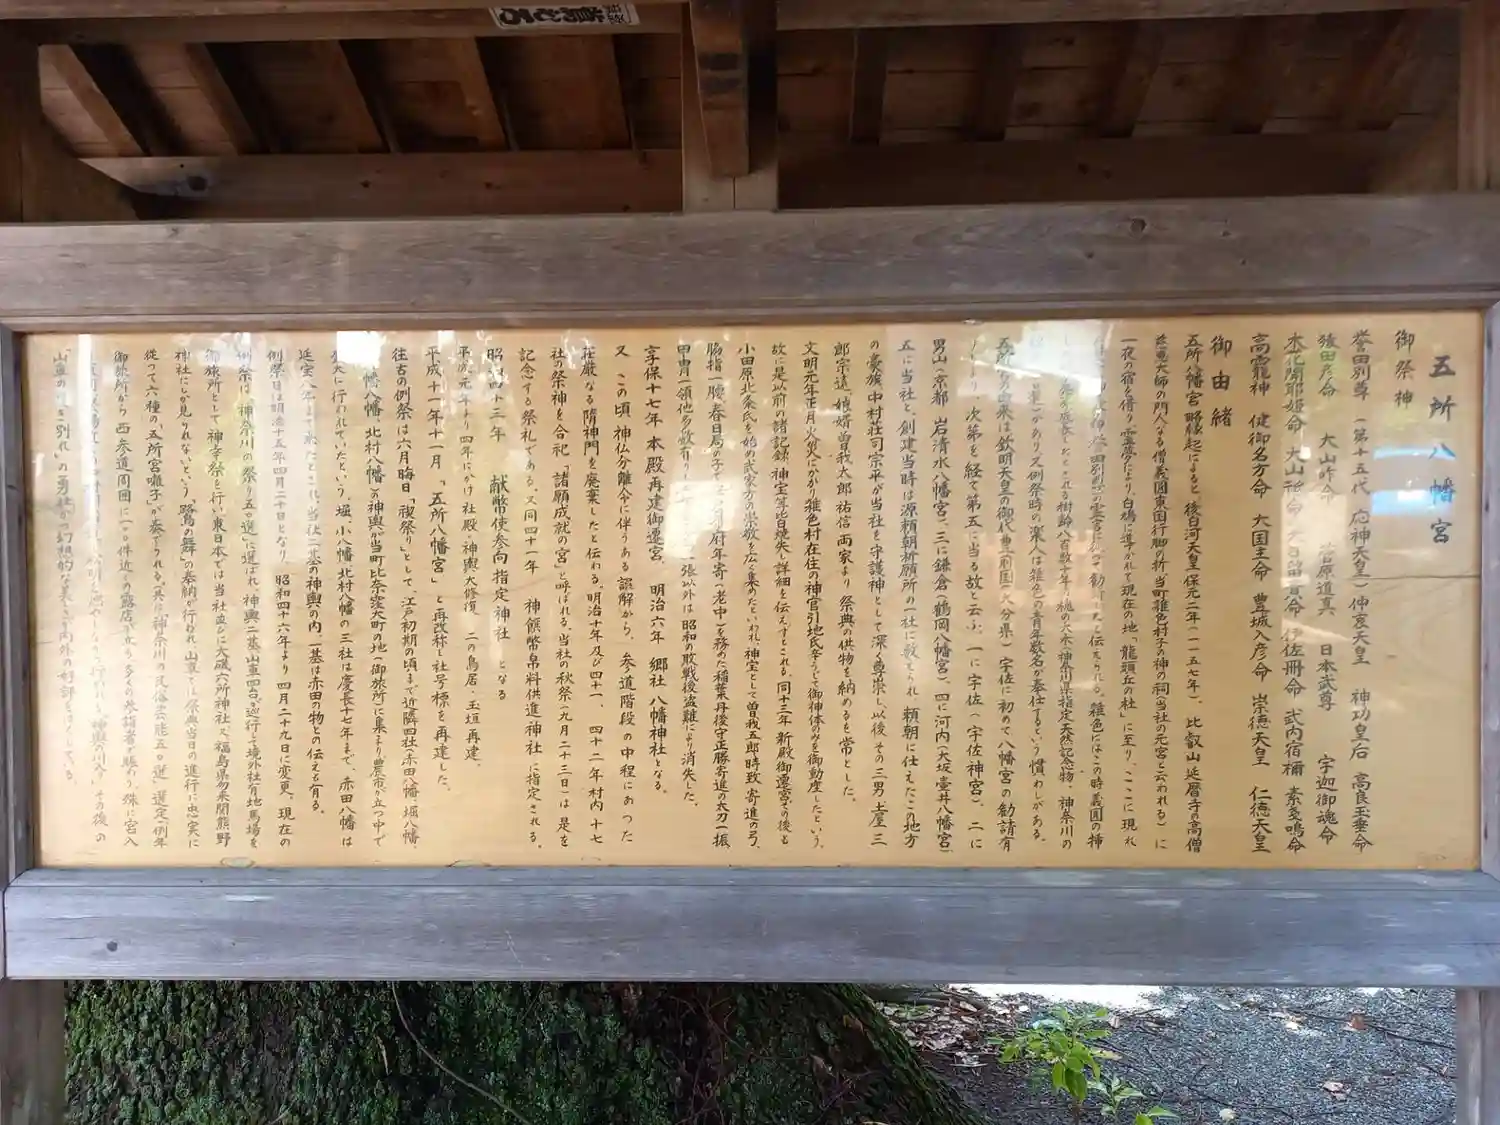 五所八幡宮
御祭神
誉田別尊 (第十五代 応神天皇) 仲哀天皇 神功皇后 高良玉垂命
猿田彦命 大山咋命 菅原道真 日本武尊 宇迦御魂命
木花開耶姫命 大山祇命 大日孁貴命 伊佐冊命 武内宿禰 素戔嗚命
高靇神 健御名方命 大国主命 豊城入彦命 崇徳天皇 仁徳天皇
御由緒
五所八幡宮略縁起によると、後白河天皇保元二年(一一五七年)、比叡山延暦寺の高僧
慈覚大師の門人なる僧義圓東国行脚の折、当町雑色村子の神の祠(当社の元宮と云われる)に
一夜の宿を借り、霊夢により、白鳩に導かれて現在の地「龍頭丘の杜」に至り、ここに現れ
勧請したと伝えられる。雑色にはこの時義圓の挿
したとされる樹齢八百数十年の槙の大木(神奈川県指定天然記念物、神奈川の
があり又例祭時の楽人は雑色の青年数名が奉仕するという慣わしがある。
五所の由来は欽明天皇の御代(豊前国(大分県)宇佐に初めて八幡宮の勧請有
より、次第を経て第五に当る故と云ふ。一に宇佐(宇佐神宮)、二に
男山(京都 岩清水八幡宮)、三に鎌倉(鶴岡八幡宮)、四に河内(大坂 壷井八幡宮)
五に当社と、創建当時は源頼朝祈願所の一社に数えられ、頼朝に仕えたこの地方
の豪族、中村荘司宗平が当社を守護神として深く尊崇し、以後その三男土屋三
郎宗遠、娘婿曽我太郎祐信両家より祭典の供物を納めるを常とした。
文明元年正月火災にかかり雑色村在住の神官引地氏辛うじて御神体のみを御動座したという。
故に是以前の諸記録、神宝等皆焼失し詳細を伝えずとされる。同十三年新殿御遷宮その後も
小田原北条氏を始め武家方の崇敬を広く集めたといわれ、神宝として曽我五郎時致寄進の弓、
脇指一腰、春日局の子で江戸幕府年寄(老中)を務めた稲葉丹後守正勝寄進の太刀一振、
甲冑一領他多数有り 張以外は昭和の敗戦後盗難により消失した。
享保十七年 本殿再建御遷宮、明治六年 郷社 八幡神社となる。
又 この頃 神仏分離令に伴うある誤解から、参道階段の中程にあった
荘厳なる隋神門を廃棄したと伝わる。明治十年及び四十一、四十二年村内 十七
社の祭神を合祀、「諸願成就の宮」と呼ばれる。当社の秋祭(九月二十三日)は是を
記念する祭礼である。又同四十一年 神饌幣帛料供進神社に指定される。
昭和四十三年 献幣使参向指定神社 となる
平成元年より四年にかけ社殿、神輿大修復、二の鳥居、玉垣再建、
平成十一年十一月「五所八幡宮」と再改称し社号標を再建した。
往古の例祭は六月晦日「禊祭り」として、江戸初期の頃まで近隣四社(赤田八幡、堀八幡、
八幡、北村八幡)の神輿が当町比奈窪大町の地(御旅所)に集まり農市が立つ中で
盛大に行われていたという。堀、小八幡、北村八幡の三社は慶長十七年まで、赤田八幡は
延宝八年まで来たとされ、当社二基の神輿の内、一基は赤田の物との伝えも有る。
例祭日は明治十五年四月二十日となり、昭和四十六年より四月二十九日に変更、現在の
例祭は「神奈川の祭り五〇選」に選ばれ神輿二基山車四台が巡行し境外社有地馬場を
御旅所として神幸祭を行い、東日本では当社並びに大磯六所神社又、福島県勿来関熊野
神社にしか見られないという「鷺の舞」の奉納が行われ、山車では祭典当日の進行に忠実に
従って六種の「五所宮囃子」が奏でられる。(共に神奈川の民俗芸能五〇選」選定)例年
御旅所から西参道周囲に一〇〇件近くの露店が立ち、多くの参拝者で賑わう。殊に宮入
神輿の川入、その後の
「山車の 別れ」の勇壮かつ幻想的な美しさは内外の好評をはくしている。